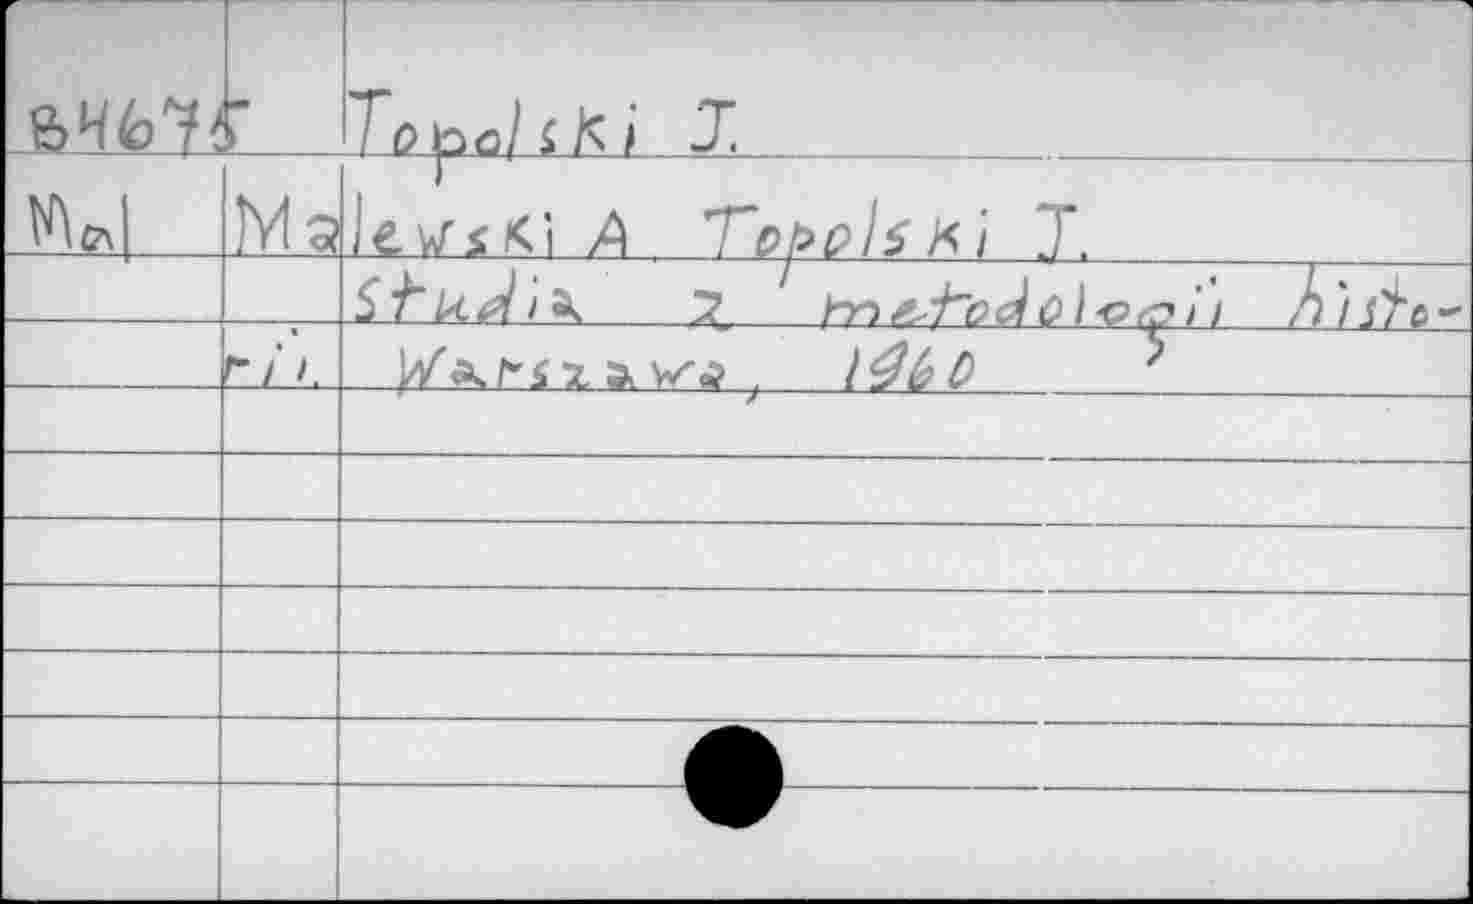 84675 Topolski J.
Mal Malewski A. Topolski J.
Studia z metodologii histo-
rii. Warszawa, 1960